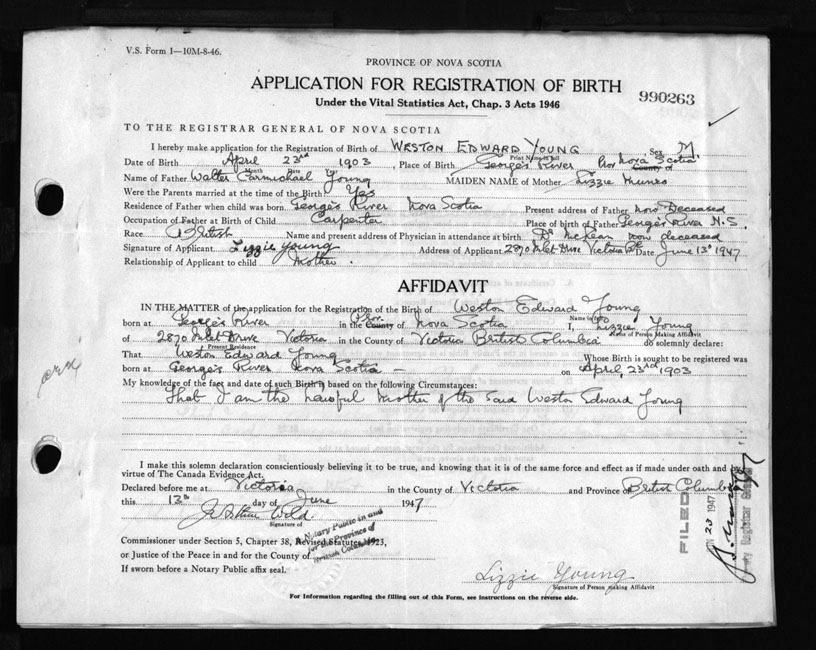 V.S. Form 1—10M-8-46.
PROVINCE OF NOVA SCOTIA
APPLICATION FOR REGISTRATION OF BIRTH
990263
Under the Vital Statistics Act, Chap. 3 Acts 1946
TO THE REGISTRAR GENERAL OF NOVA SCOTIA
I hereby make application for the Registration of Birth of WESTON EDWARD YOUNG Sex M.
Print Name in full
Date of Birth April 23rd 1903, Place of Birth George's River Prov Nova Scotia
Month Date County of
Name of Father Walter Carmichael Young MAIDEN NAME of Mother Lizzie Munro
Were the Parents married at the time of the Birth Yes
Residence of Father when child was born George's River Nova Scotia Present address of Father now Deceased
Occupation of Father at Birth of Child Carpenter Place of birth of Father George's River N.S.
Race British Name and present address of Physician in attendance at birth Dr McLean now deceased
Signature of Applicant Lizzie Young Address of Applicant 2870 Inlet Drive Victoria BC Date June 13th 1947
Relationship of Applicant to child Mother.
AFFIDAVIT
IN THE MATTER of the application for the Registration of the Birth of Weston Edward Young
Name in full
born at George's River in the County Prov. of Nova Scotia I, Lizzie Young
Name of Person Making Affidavit
of 2870 Inlet Drive Victoria in the County of Victoria British Columbia do solemnly declare:
Present Residence
That Weston Edward Young Whose Birth is sought to be registered was
born at George's River Nova Scotia — on April, 23rd 1903
My knowledge of the fact and date of such Birth is based on the following Circumstances:
That I am the Lawful Mother of the said Weston Edward Young
I make this solemn declaration conscientiously believing it to be true, and knowing that it is of the same force and effect as if made under oath and by
virtue of The Canada Evidence Act.
Declared before me at Victoria in the County of Victoria and Province of British Columbia
this 13th day of June 1947
Signature of
Notary Public in and
for the Province of
British Columbia
Commissioner under Section 5, Chapter 38, Revised Statutes, 1923,
or Justice of the Peace in and for the County of
If sworn before a Notary Public affix seal.
Lizzie Young
Signature of Person making Affidavit
For Information regarding the filling out of this Form, see instructions on the reverse side.
FILED
23 1947
Deputy Registrar General